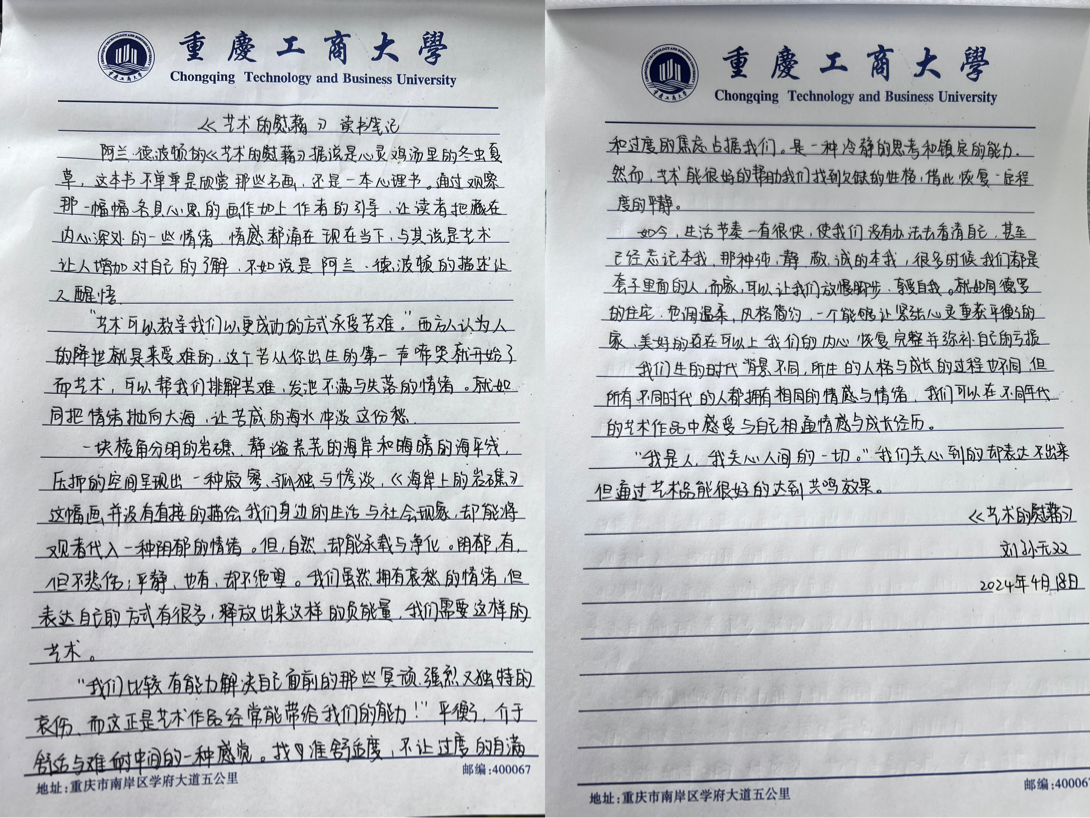 重慶工商大學
Chongqing Technology and Business University
《艺术的慰藉》读书笔记
阿兰·德波顿的《艺术的慰藉》据说是心灵鸡汤里的冬虫夏
草，这本书不单单是欣赏那些名画，还是一本心理书。通过观察
那一幅幅各具心思的画作加上作者的引导，让读者把藏在
内心深处的一些情绪、情感都涌在现在当下，与其说是艺术
让人增加对自己的了解，不如说是阿兰·德波顿的描述让
人醒悟
"艺术可以教导我们以更成功的方式承受苦难。"西方人认为人
的降世就是来受难的，这个苦从你出生的第一声啼哭就开始了
而艺术，可以帮我们排解苦难，发泄不满与失落的情绪。就如
同把情绪抛向大海，让苦咸的海水冲淡这份愁.
一块棱角分明的岩礁、静谧荒芜的海岸和晦暗的海平线，
压抑的空间呈现出一种寂寥、孤独与惨淡，《海岸上的岩礁》
这幅画，并没有直接的描绘我们身边的生活与社会现象，却能将
观者代入一种阴郁的情绪。但，自然，却能承载与净化。阴郁，有，
但不悲伤；平静，也有，却不绝望。我们虽然拥有哀愁的情绪，但
表达自己的方式有很多，释放出来这样的负能量，我们需要这样的
艺术。
"我们比较有能力解决自己面前的那些冥顽、强烈又独特的
哀伤，而这正是艺术作品经常能带给我们的能力！"平衡，介于
舒适与难耐中间的一种感觉。找准舒适度，不让过度的自满
地址:重庆市南岸区学府大道五公里
邮编:400067
重慶工商大學
Chongqing Technology and Business University
和过度的焦虑占据我们。是一种冷静的思考和镇定的能力.
然而，艺术能很好的帮助我们找到欠缺的性格，借此恢复一定程
度的平静。
如今，生活节奏一直很快，使我们没有办法去看清自己，甚至
已经忘记本我，那种纯、静、敬、诚的本我，很多时候我们都是
套子里面的人，而家，可以让我们放慢脚步，自我。就如同德罗
的住宅，色调温柔，风格简约，一个能够让紧张心灵重获平衡的
家，美好的存在可以上我们的内心恢复完整并弥补自己的亏损
我们生的时代背景不同，所生的人格与成长的过程也不同，但
所有不同时代的人都拥有相同的情感与情绪，我们可以在不同年代
的艺术作品中感受与自己相通情感与成长经历。
"我是人，我关心人间的一切。"我们关心到的却表达不出来
但通过艺术品能很好的达到共鸣效果。
《艺术的慰藉》
刘孙无双
2024年4月18日
地址:重庆市南岸区学府大道五公里
邮编:40006